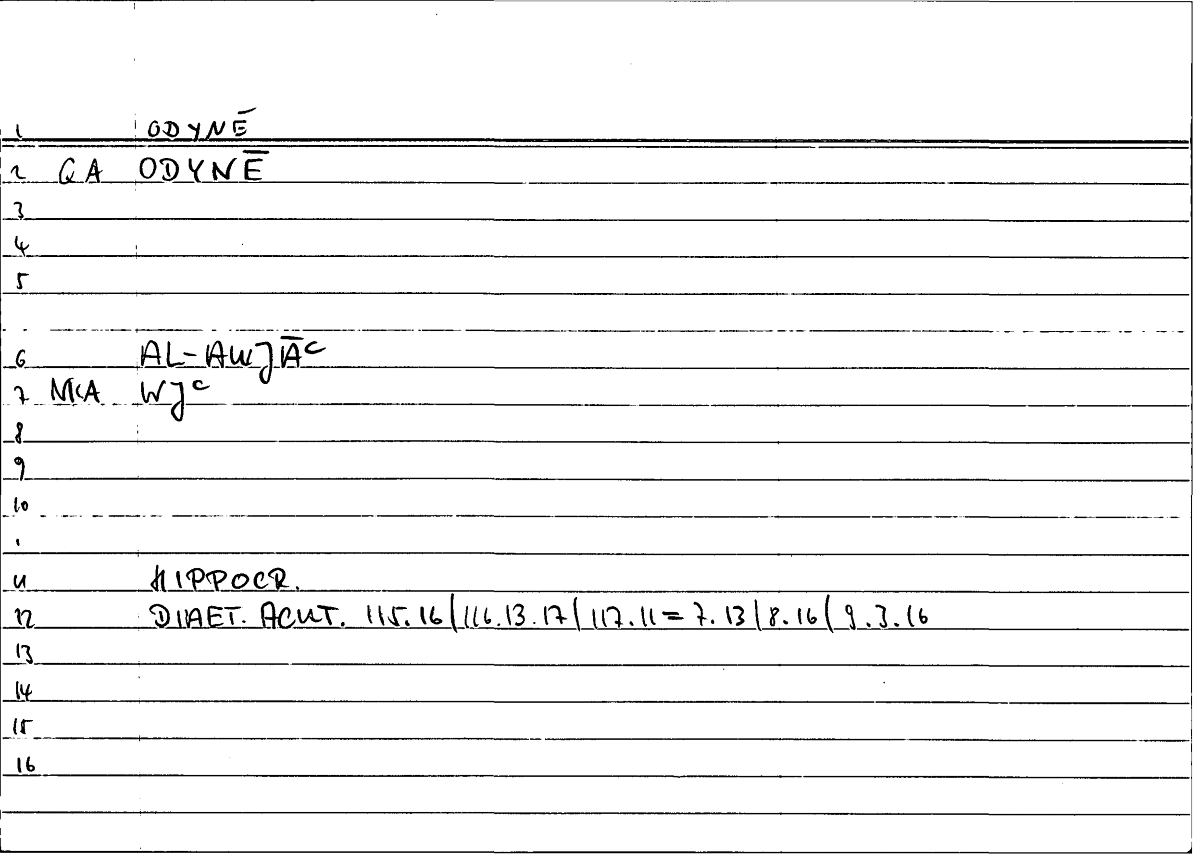 1 ODYNĒ
2 GA ODYNĒ
3
4
5
6 AL-AWJĀC
7 NKA WJC
8
9
10
11 HIPPOCR.
12 DIAET. ACUT. 115.16/116.13.17/117.11=7.13/8.16/9.3.16
13
14
15
16